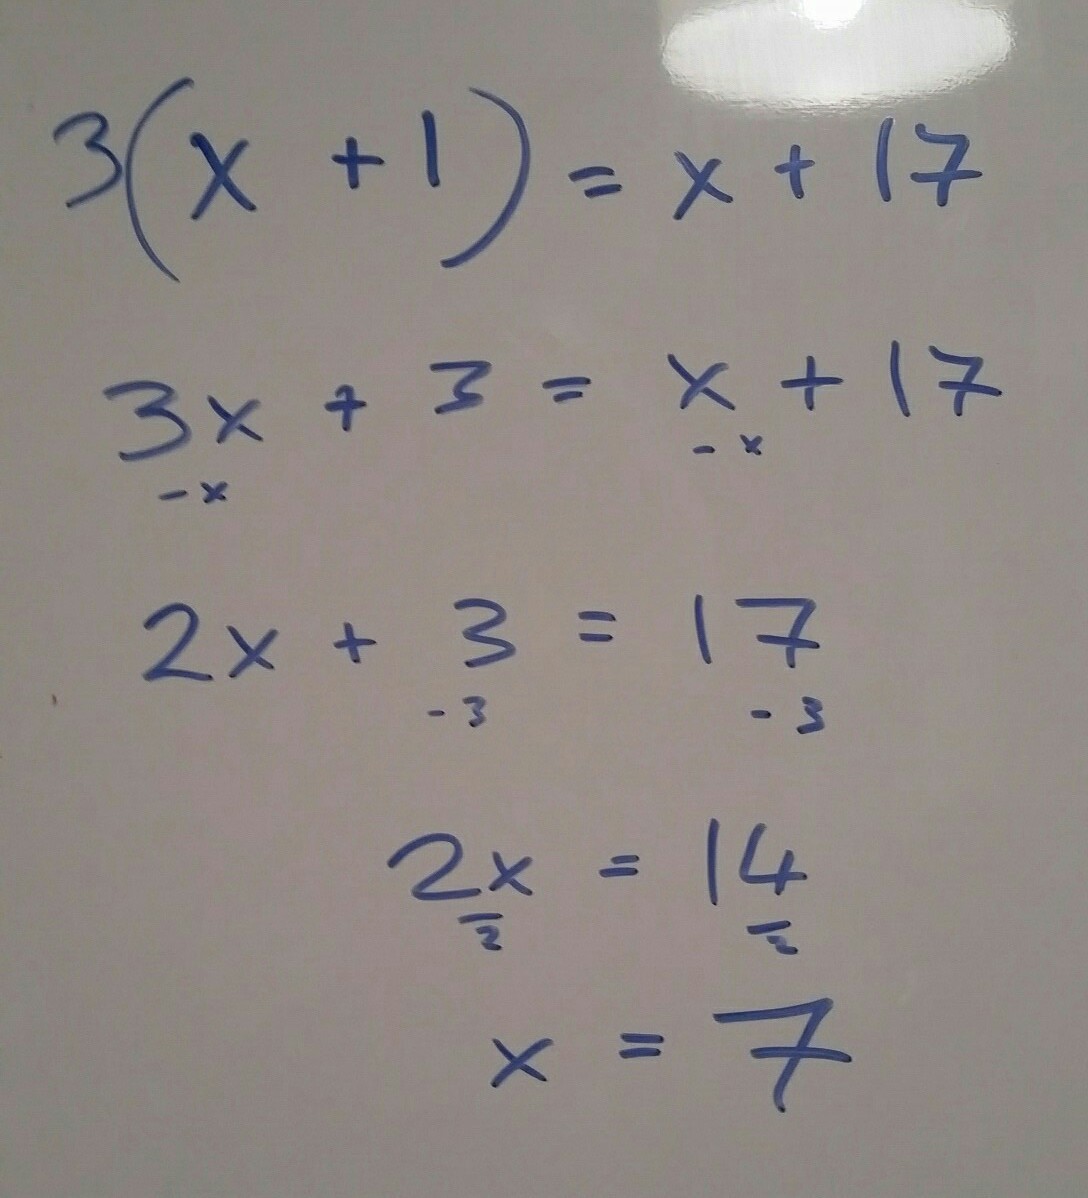 3(x + 1) = x + 17
3x + 3 = x + 17
-x -x
2x + 3 = 17
-3 -3
2x = 14
2 2
x = 7